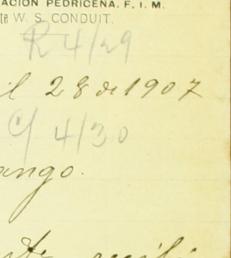 ACIÓN PEDRICEÑA, F. I. M.
te W. S. CONDUIT.
R 4/29
il 28 de 1907
C/ 4/30
ango.